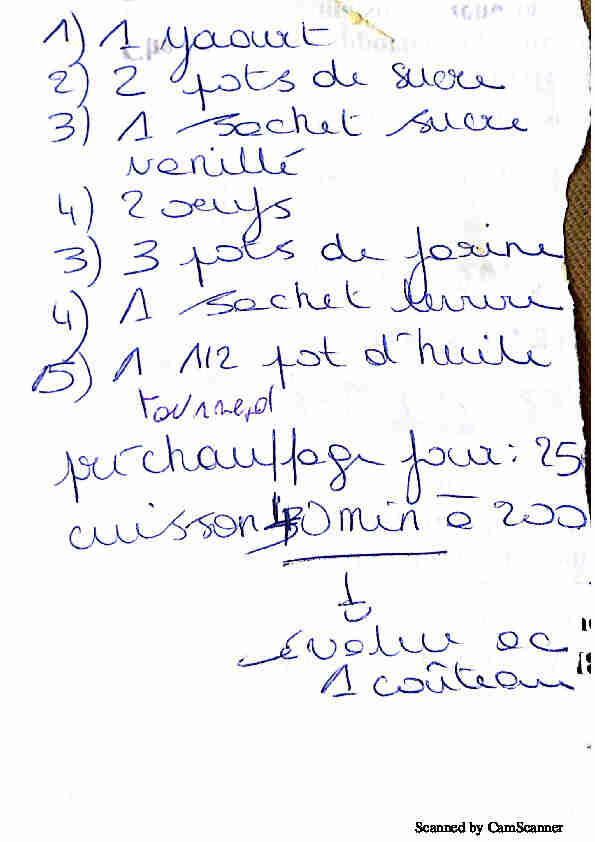 1) 1 yaourt
2) 2 pots de sucre
3) 1 sachet sucre
vanillé
4) 2 oeufs
3) 3 pots de farine
4) 1 sachet levure
5) 1 1/2 pot d'huile
tournesol
préchauffage four : 25
cuisson 40 min à 200
évaluer ac
1 coûteau
Scanned by CamScanner